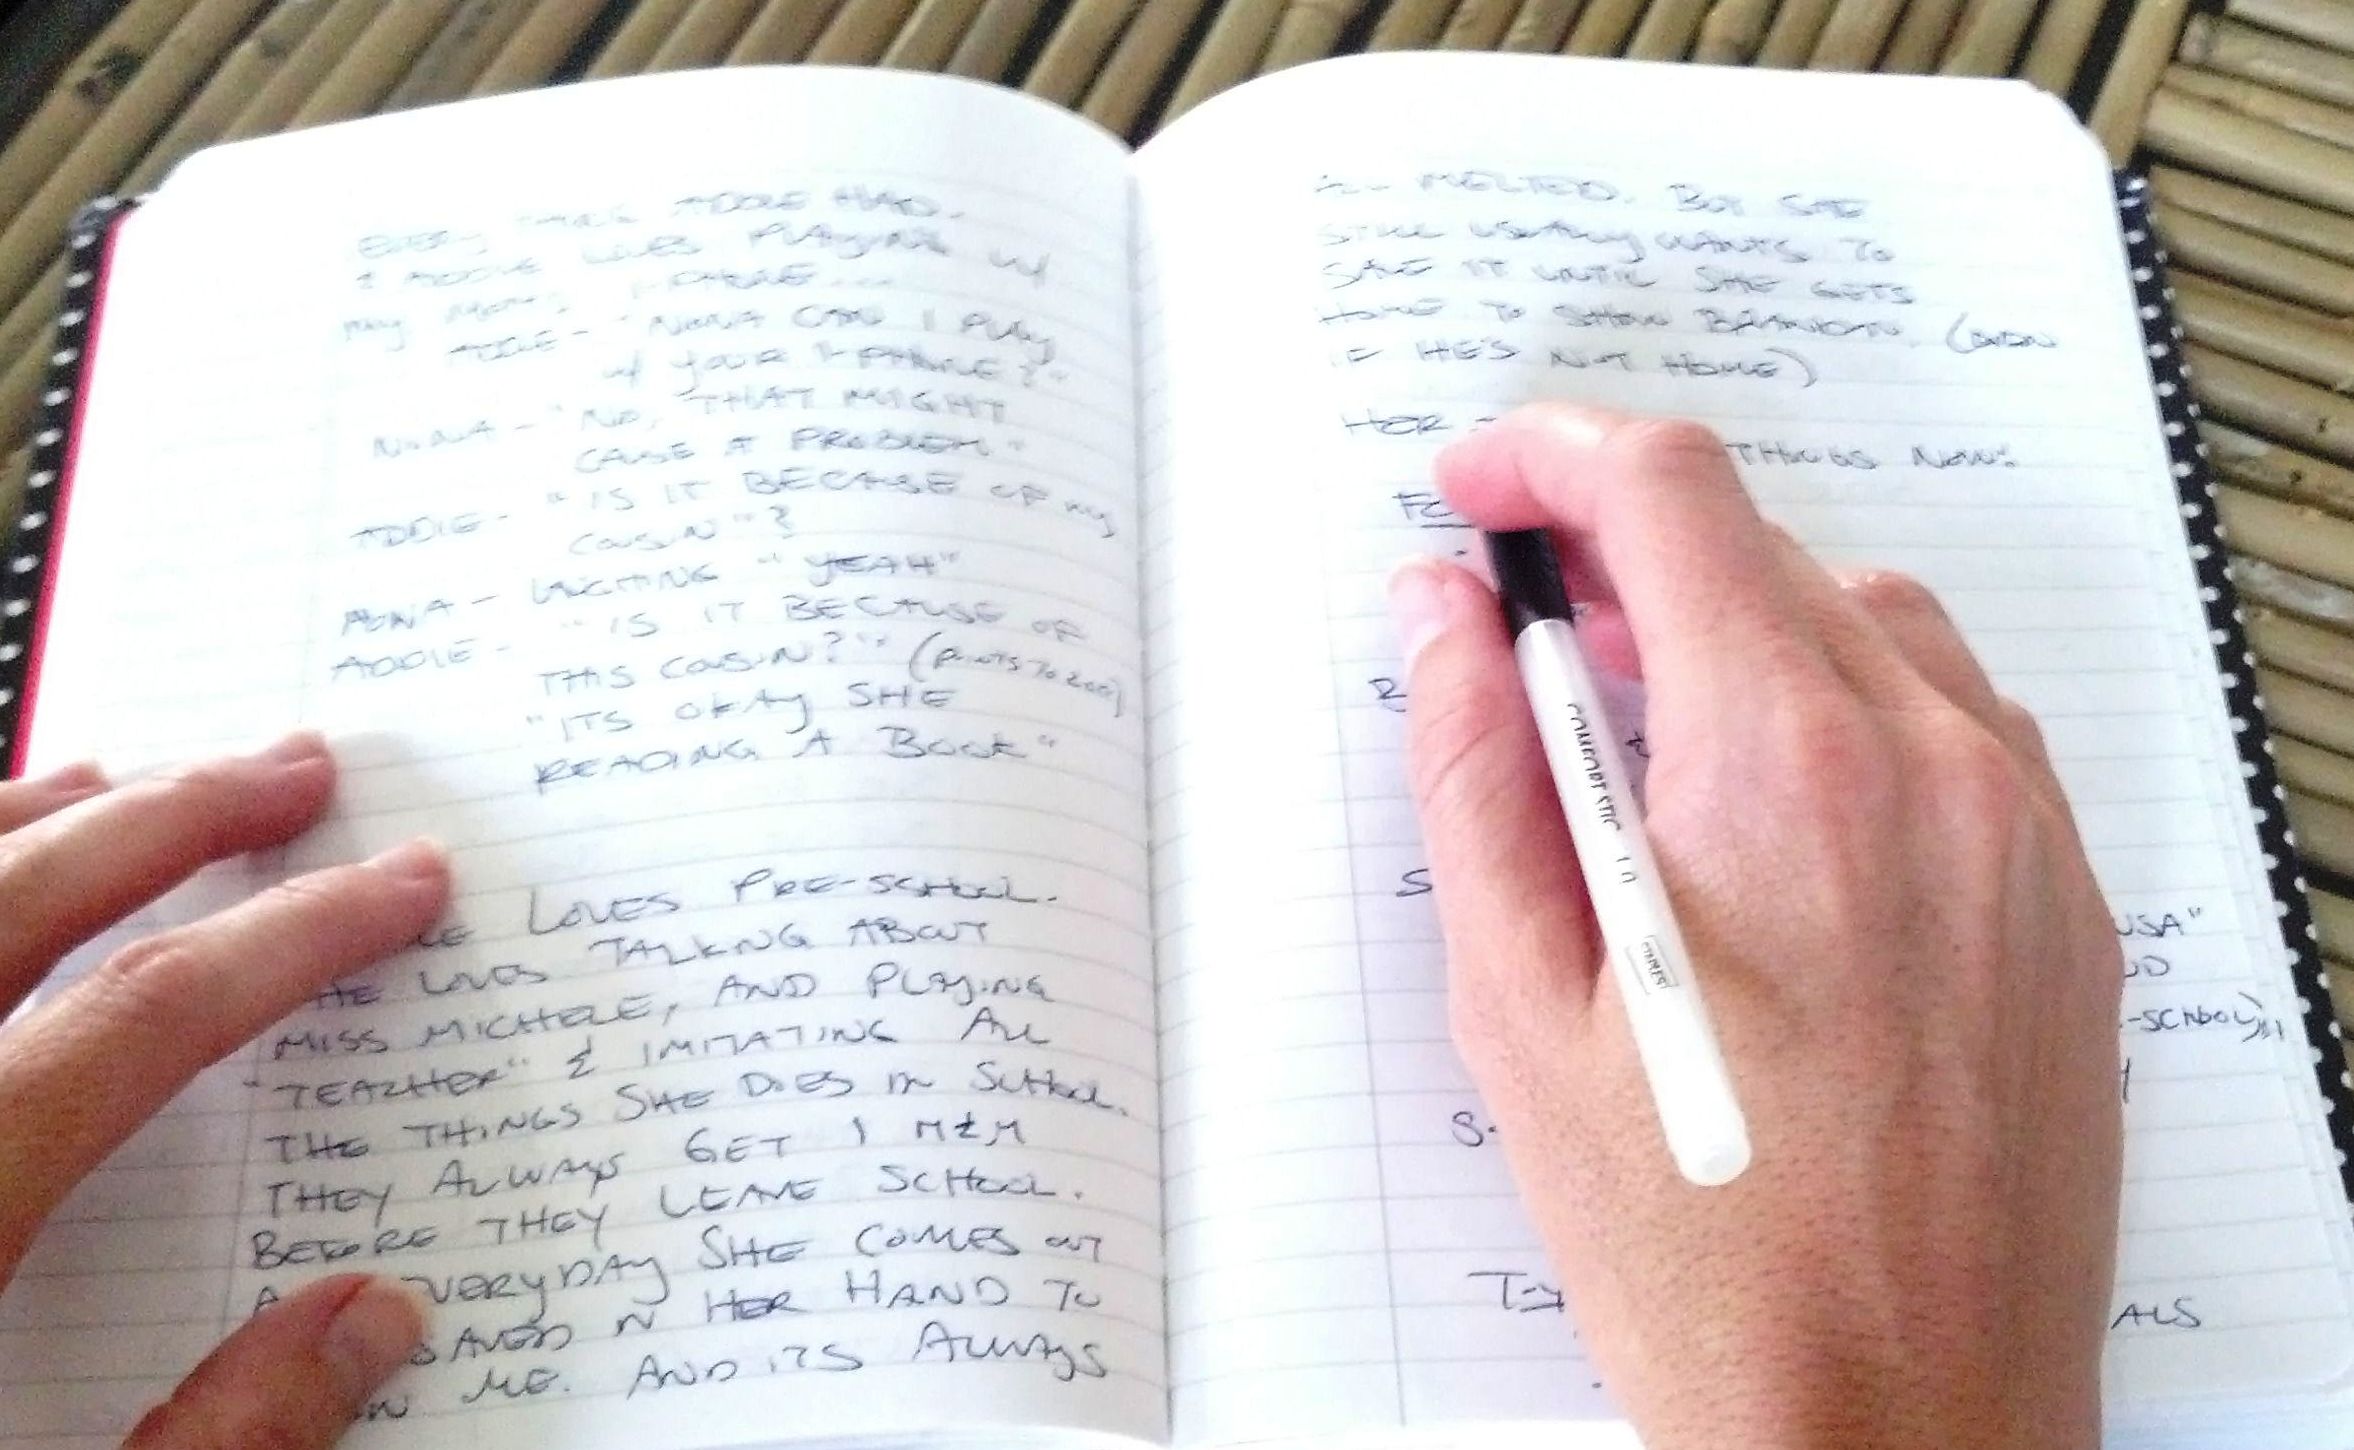 EVERY TIME ADDIE HAD.
& ADDIE LOVES PLAYING W/
MY MOM'S I-PHONE...
ADDIE - "NONA CAN I PLAY
W/ YOUR I-PHONE?"
NONA - "NO, THAT MIGHT
CAUSE A PROBLEM"
ADDIE - "IS IT BECAUSE OF MY
COUSIN"?
NONA - "YEAH"
ADDIE - "IS IT BECAUSE OF
THIS COUSIN?" (POINTS TO
"ITS OKAY SHE
READING A BOOK"
LOVES PRE-SCHOOL.
HE LOVES TALKING ABOUT
MISS MICHELE, AND PLAYING
"TEACHER" & IMITATING ALL
THE THINGS SHE DOES IN SCHOOL.
THEY ALWAYS GET 1 M&M
BEFORE THEY LEAVE SCHOOL.
EVERYDAY SHE COMES OUT
SAVED IN HER HAND TO
ME. AND ITS ALWAYS
MELTED. BUT SHE
STILL USUALLY WANTS TO
SAVE IT UNTIL SHE GETS
HOME TO SHOW BRANDON. (EVEN
IF HE'S NOT HOME)
HER THINGS NOW:
USA"
-SCHOOL)
ALS
COMFORT STIC 1.0